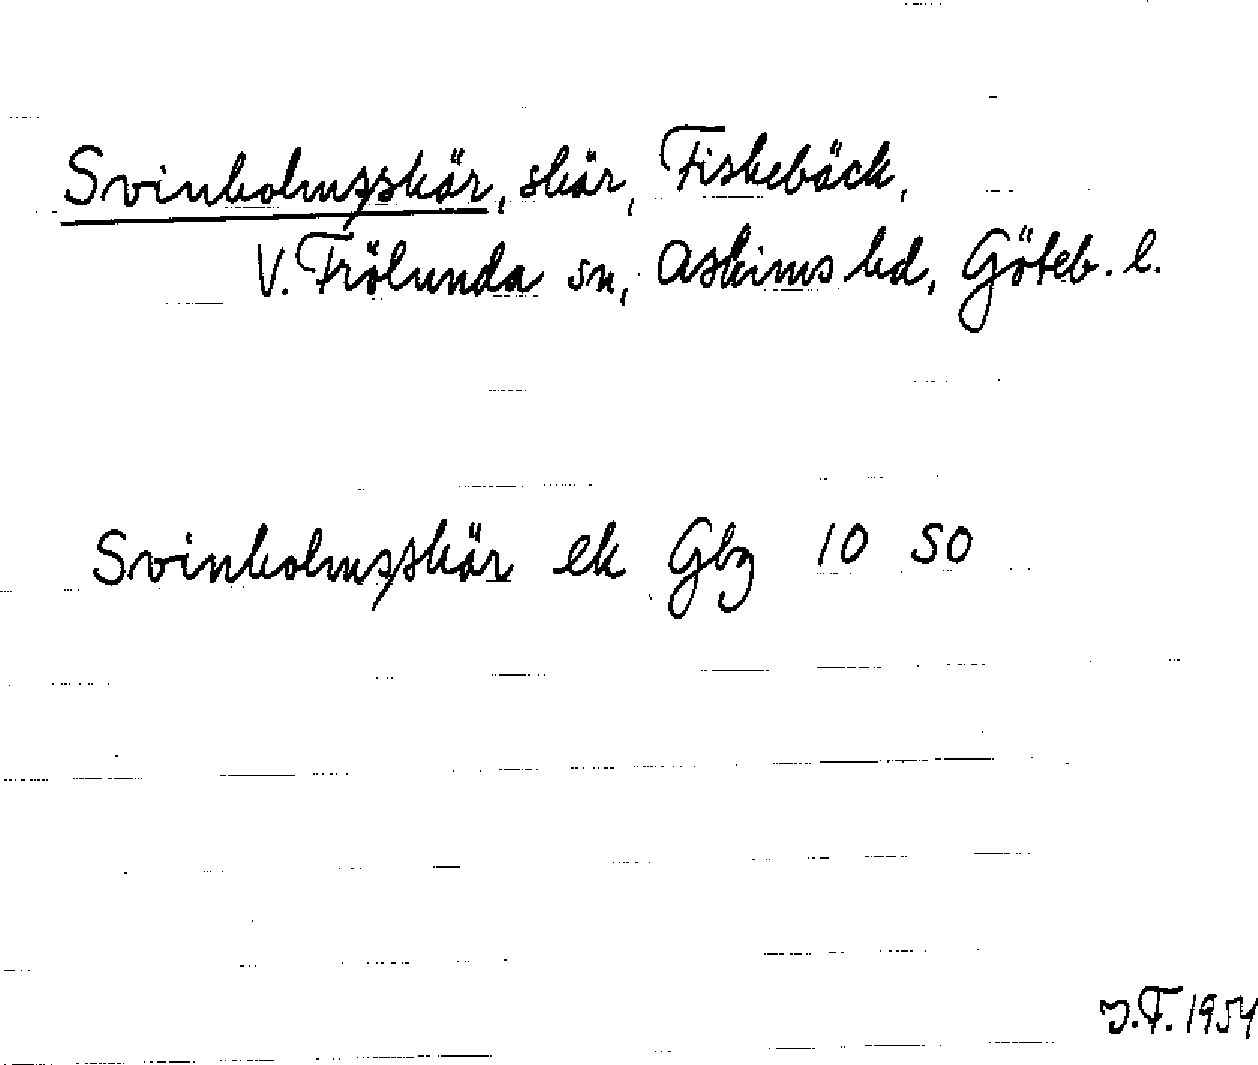 Svinholmsskär, skär, Fiskebäck,
V. Frölunda sn, Askims hd, Göteb. l.
Svinholmsskär ek Gbg 10 SO
J.F. 1954